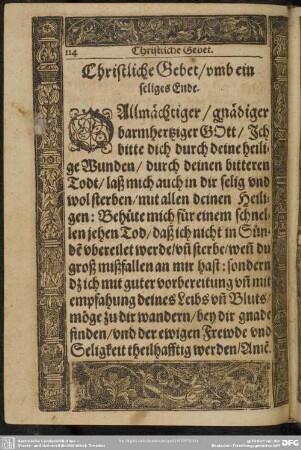 114
Christliche Gebet.
Christliche Gebet/vmb ein
seliges Ende.
O Allmächtiger / gnädiger
barmhertziger GOtt / Ich
bitte dich durch deine heili-
ge Wunden / durch deinen bitteren
Todt / laß mich auch in dir selig vnd
wol sterben/mit allen deinen Heili-
gen: Behüte mich für einem schnel-
len jehen Tod/daß ich nicht in Sün-
dē vbereilet werde/vn̄ sterbe/wen̄ du
groß mißfallen an mir hast: sondern
dz ich mit guter vorbereitung vn̄ mit
empfahung deines Leibs vn̄ Bluts/
möge zu dir wandern/bey dir gnade
finden/vnd der ewigen Frewde vnd
Seligkeit theilhafftig werden/Amē.
DFG